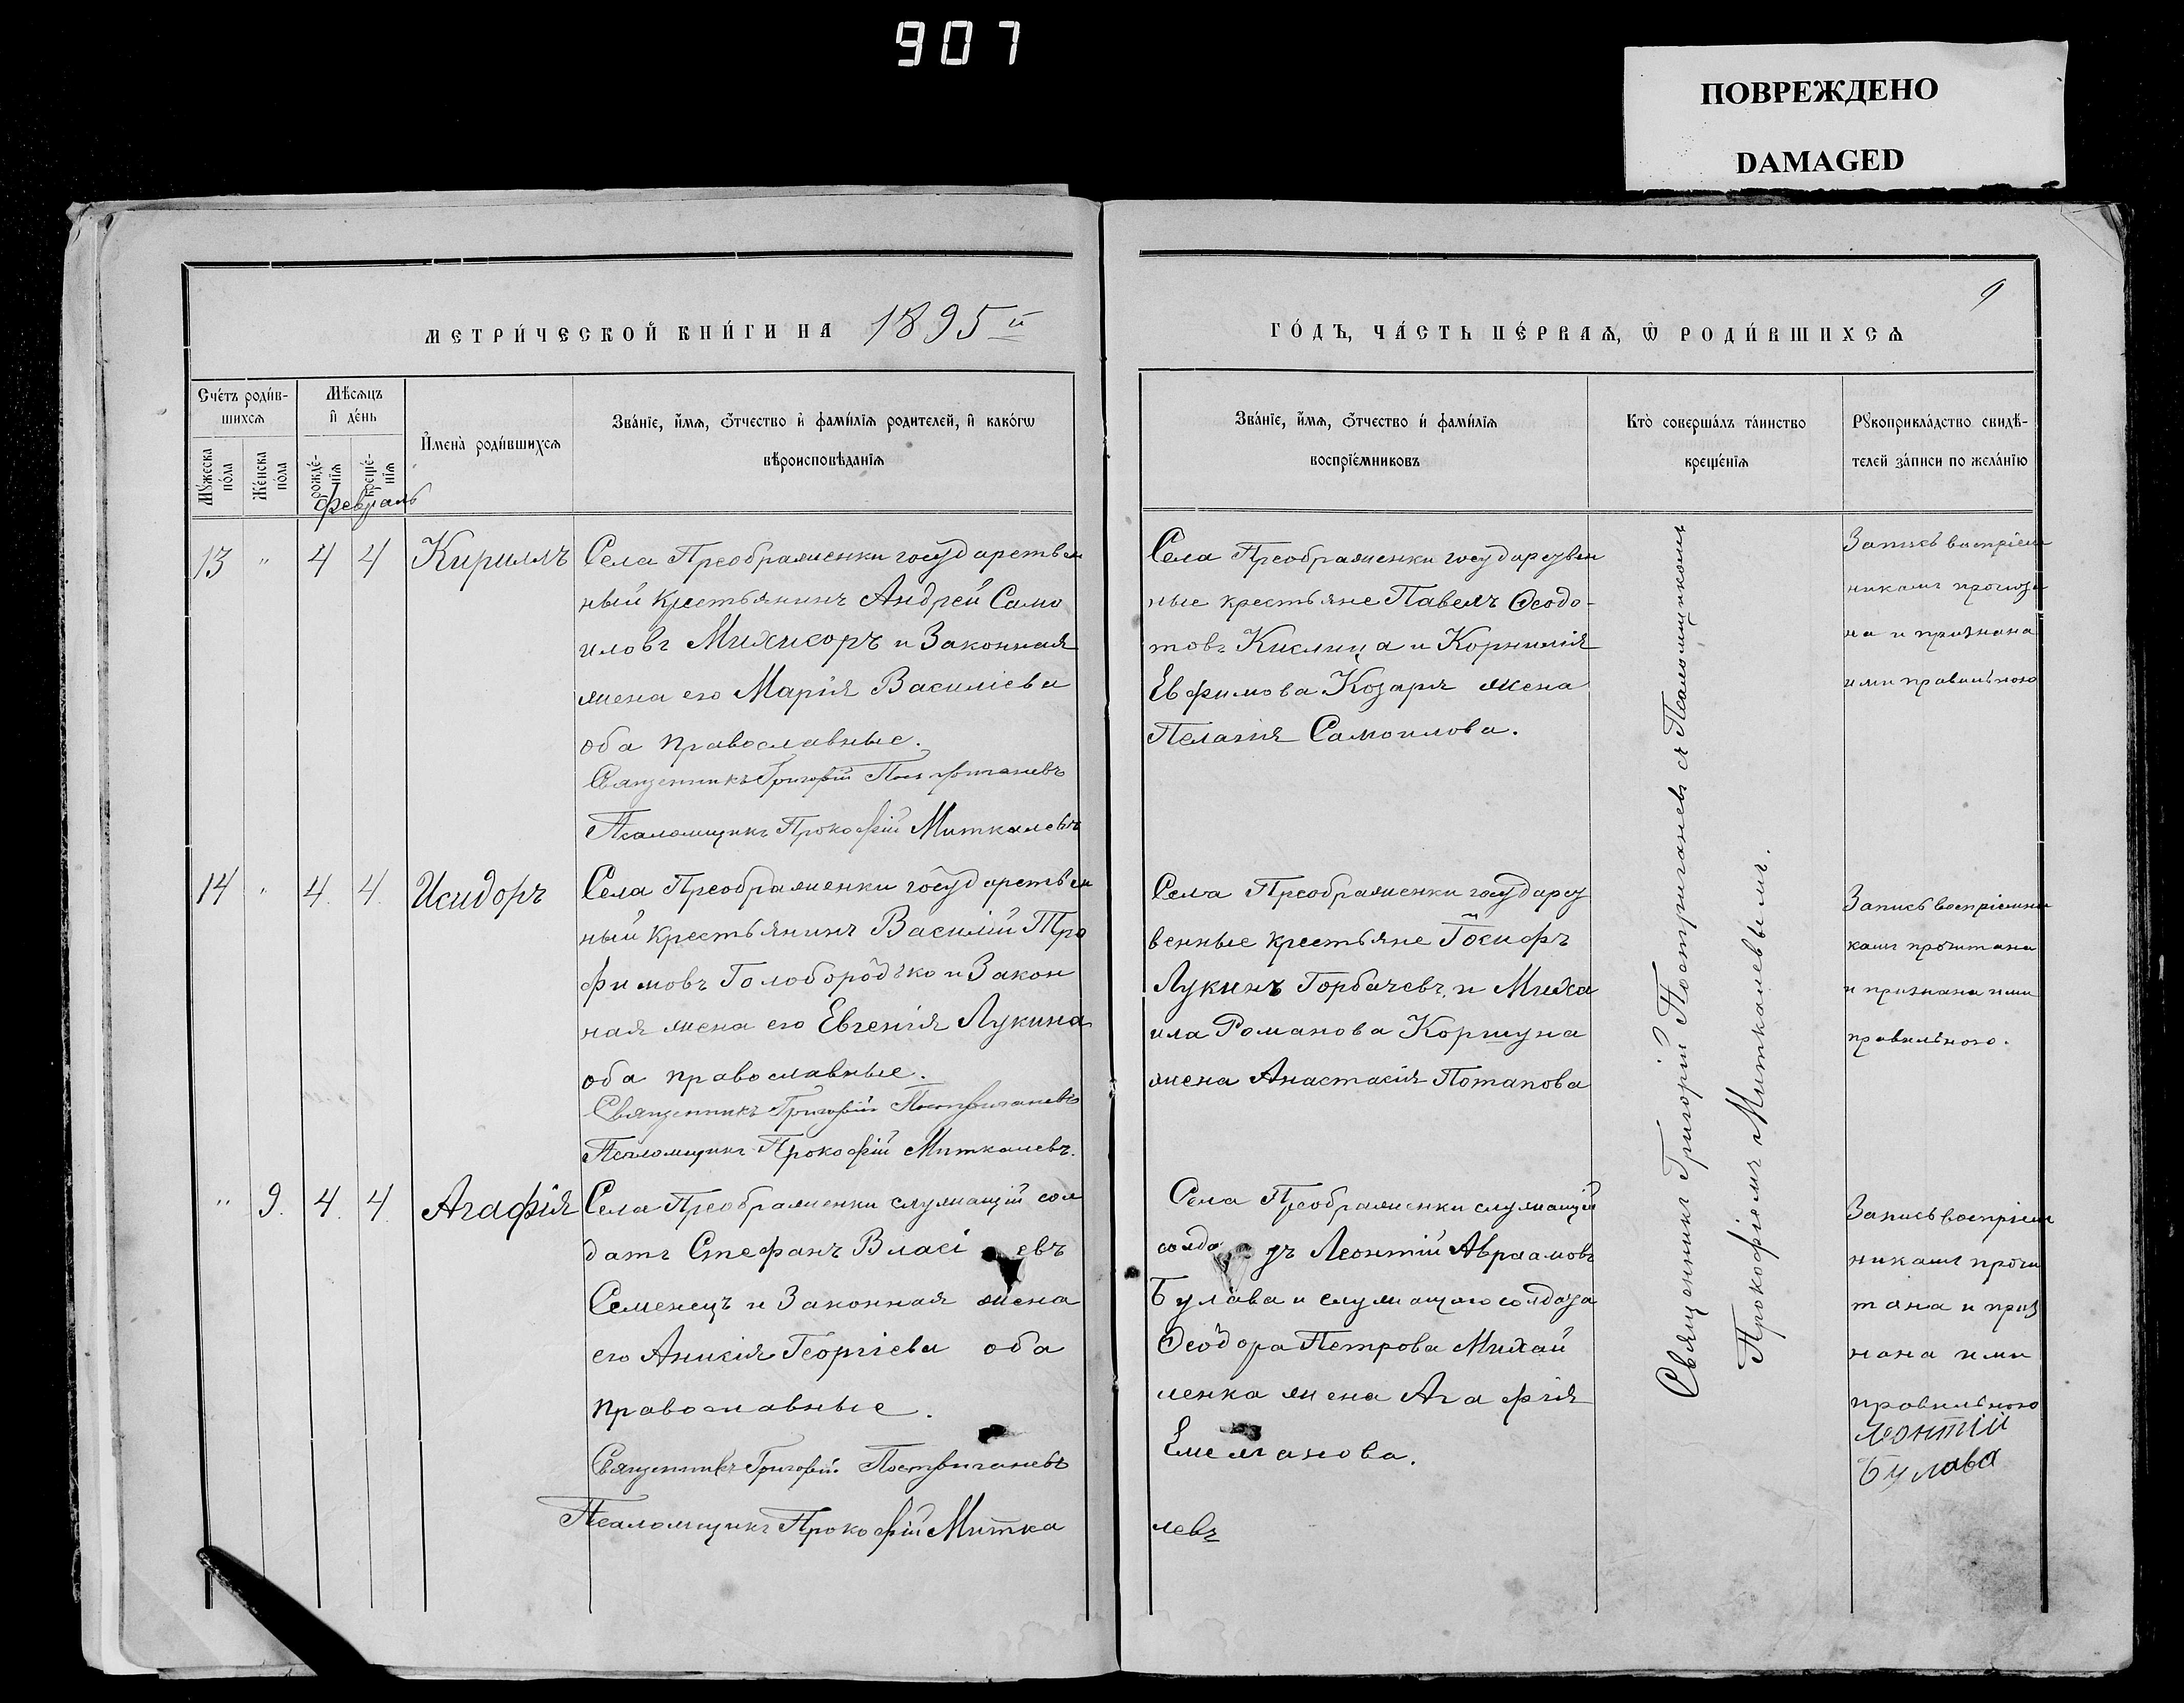 907
ПОВРЕЖДЕНО
DAMAGED
9
МЕТРИ́ЧЕСКОЙ КНИ́ГИ НА 1895й
ГО́ДЪ, ЧА́СТЬ ПЕ́РВАѦ, Ѿ РОДИ́ВШИХСѦ
Сче́тъ роди́в-
шихсѧ
Мѣсѧцъ
и҆ де́нь
И҆мена̀ роди́вшихсѧ
Зва́нїе, и҆́мѧ, ѻ҆́тчество и҆ фами́лїѧ родителей, и҆ како́гѡ
вѣроисповѣ́данїѧ
Мꙋ́жеска
по́ла
Же́нска
по́ла
рожде́-
нїѧ
креще́-
нїѧ
февраль
Зва́нїе, и҆́мѧ, ѻ҆́тчество и҆ фами́лїѧ
воспрїе́мниковъ
Кто̀ соверша́лъ та́инство
креще́нїѧ
Рꙋкоприкла́дство свидѣ́-
телей за́писи по жела́нїю
13 " 4 4 Кириллъ
Села Преображенки государствен
ный крестьянинъ Андрей Само
иловъ Михисоръ и Законная
жена его Марія Василіева
оба православные.
Священникъ Григорій Постриганевъ
Псаломщикъ Прокофій Миткалевъ
Села Преображенки государствен
ные крестьяне Павелъ Ѳеодо-
товъ Кислица и Корнилія
Евфимова Козаря жена
Пелагія Самоилова.
Запись воспріем
никамъ прочита
на и признана
ими правильною
14 " 4. 4. Исидоръ
Села Преображенки государствен
ный крестьянинъ Василій Тро
фимовъ Голобородько и Закон
ная жена его Евгенія Лукина
оба православные.
Священникъ Григорій Постриганевъ
Псаломщикъ Прокофій Миткалевъ.
Села Преображенки государст
венные крестьяне Іосифъ
Лукинъ Горбачевъ и Миха
ила Романова Коршуна
жена Анастасія Потапова
Запись воспріемни
камъ прочитана
и признана ими
правильною.
" 9. 4. 4. Агафія
Села Преображенки служащій сол
датъ Стефанъ Власі евъ
Семенецъ и Законная жена
его Анисія Георгіева оба
православные.
Священникъ Григорій Постриганевъ
Псаломщикъ Прокофій Митка
Села Преображенки служащій
солда тъ Леонтій Авраамовъ
Булава и служащаго солдата
Ѳеодора Петрова Михай
ленка жена Агафія
Емелianова.
левъ
Запись воспріем
никамъ прочи
тана и приз
нана ими
правильною
Леонтій
Булава
Священникъ Григорій Постриганевъ съ Псаломщикомъ
Прокофіемъ Миткалевымъ.